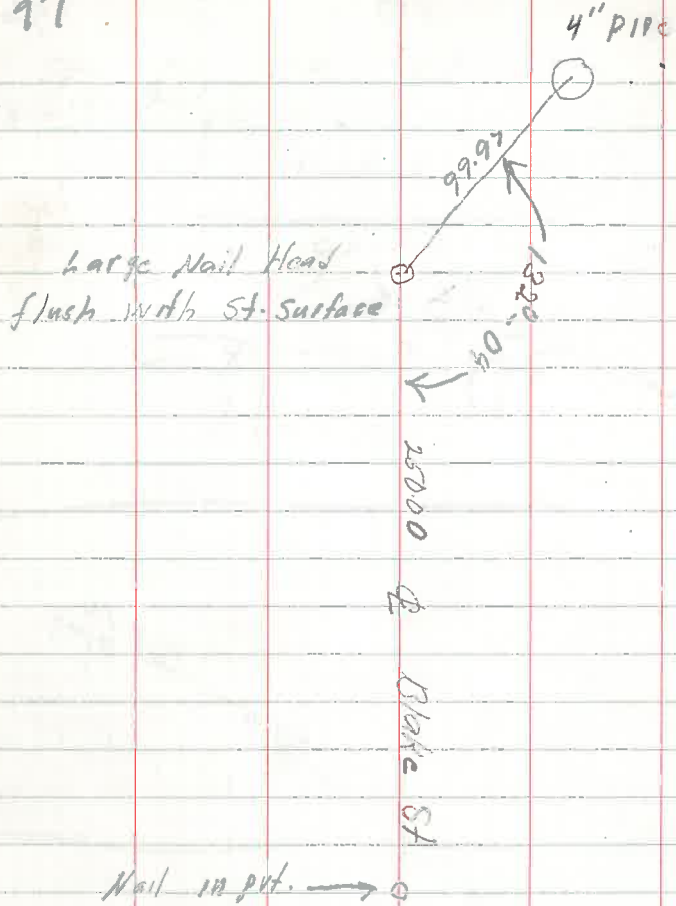 4" PIPE
99.97
Large Nail Head
flush with St. Surface
250.00 ℄ Blake St
Nail in pvt.